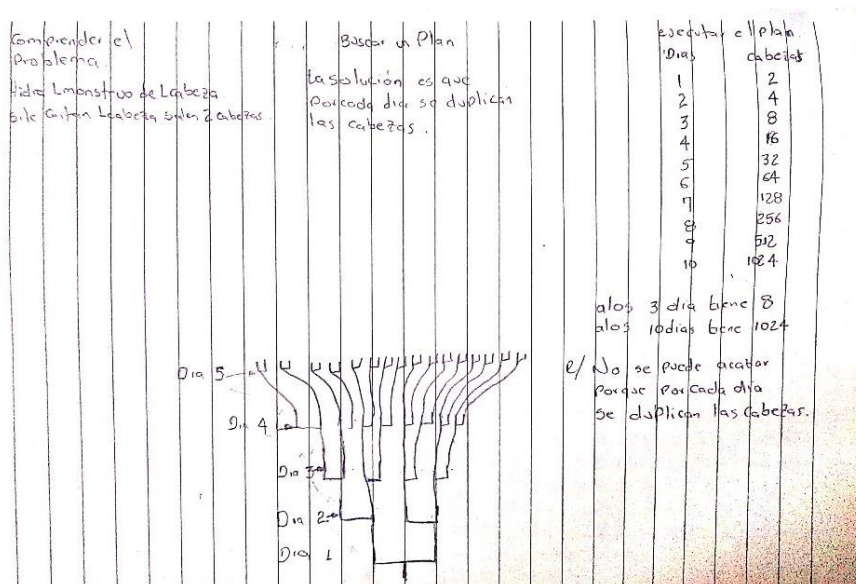 Comprender el
Problema
Hidra 1 monstruo de 1 cabeza
si le cortan 1 cabeza salen 2 cabezas.
Buscar un Plan
La solución es que
Por cada dia se duplican
las cabezas.
esecutar el Plan.
Dias cabezas
1 2
2 4
3 8
4 16
5 32
6 64
7 128
8 256
9 512
10 1024
alos 3 dia tiene 8
alos 10 dias tiene 1024
e/ No se puede acabar
Porque por cada dia
se duplican las cabezas.
Dia 5
Dia 4
Dia 3
Dia 2
Dia 1